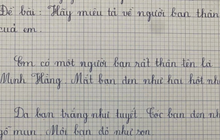 Đề bài: Hãy miêu tả về người bạn thân
của em.
Em có một người bạn rất thân tên là
Minh Hằng. Mắt bạn đen như hai hột nh
Da bạn trắng như tuyết. Tóc bạn đen n
gỗ mun. Môi bạn đỏ như son